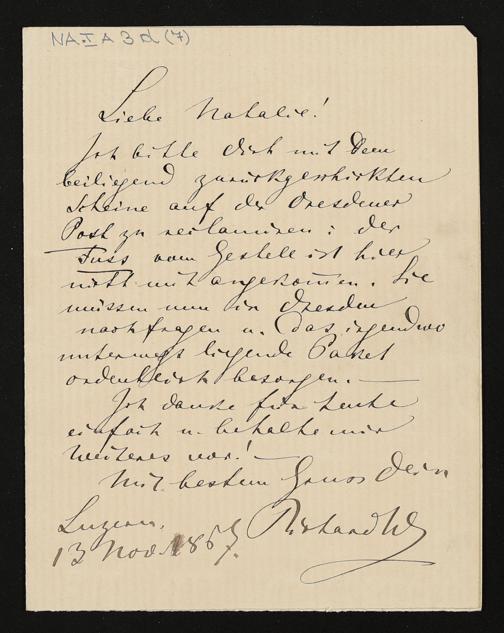 NA.I A 3 d (7)
Liebe Natalie!
Ich bitte dich mit dem
beiliegend zurückgeschickten
Scheine auf der Dresdener
Post zu reclamiren: der
Fuss vom Gestell ist hier
nicht mit angekom̄en. Sie
müssen nun in Dresden
nachfragen u. das irgendwo
unterwegs liegende Paket
ordentlich besorgen. —
Ich danke für heute
einfach u. behalte mir
Weiteres vor! —
Mit bestem Gruss Dein
Luzern. RichardW
13 Nov. 1867.